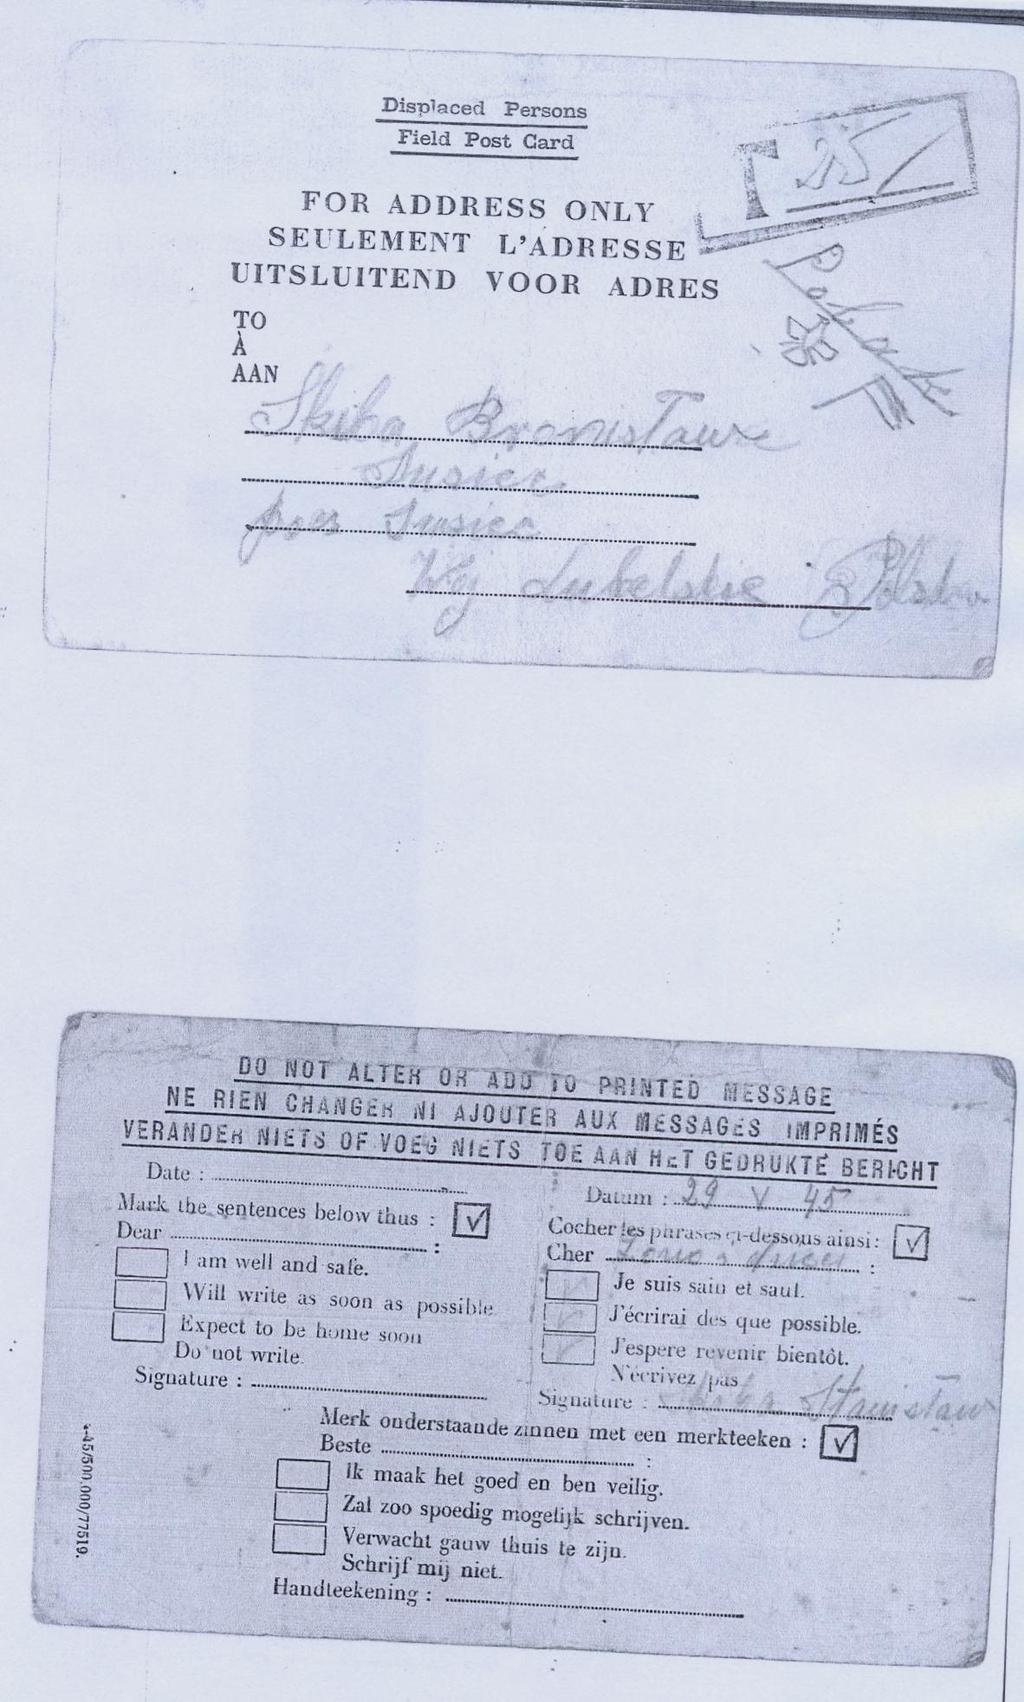 Displaced Persons
Field Post Card
T 25
FOR ADDRESS ONLY
SEULEMENT L'ADRESSE
UITSLUITEND VOOR ADRES
TO
À
AAN
Skiba Bronisława
Susiec
pocz Susiec
Woj Lubelskie Polska
DO NOT ALTER OR ADD TO PRINTED MESSAGE
NE RIEN CHANGER NI AJOUTER AUX MESSAGES IMPRIMÉS
VERANDER NIETS OF VOEG NIETS TOE AAN HET GEDRUKTE BERICHT
Date :
Mark the sentences below thus : ✓
Dear :
I am well and safe.
Will write as soon as possible.
Expect to be home soon
Do not write.
Signature :
Datum : 29 V 45
Cocher les phrases ci-dessous ainsi : ✓
Cher :
Je suis sain et sauf.
J'écrirai des que possible.
J'espere revenir bientôt.
N'écrivez pas
Signature : Skiba Stanisław
Merk onderstaande zinnen met een merkteeken : ✓
Beste :
Ik maak het goed en ben veilig.
Zal zoo spoedig mogelijk schrijven.
Verwacht gauw thuis te zijn.
Schrijf mij niet.
Handteekening :
4-45/500.000/77519.